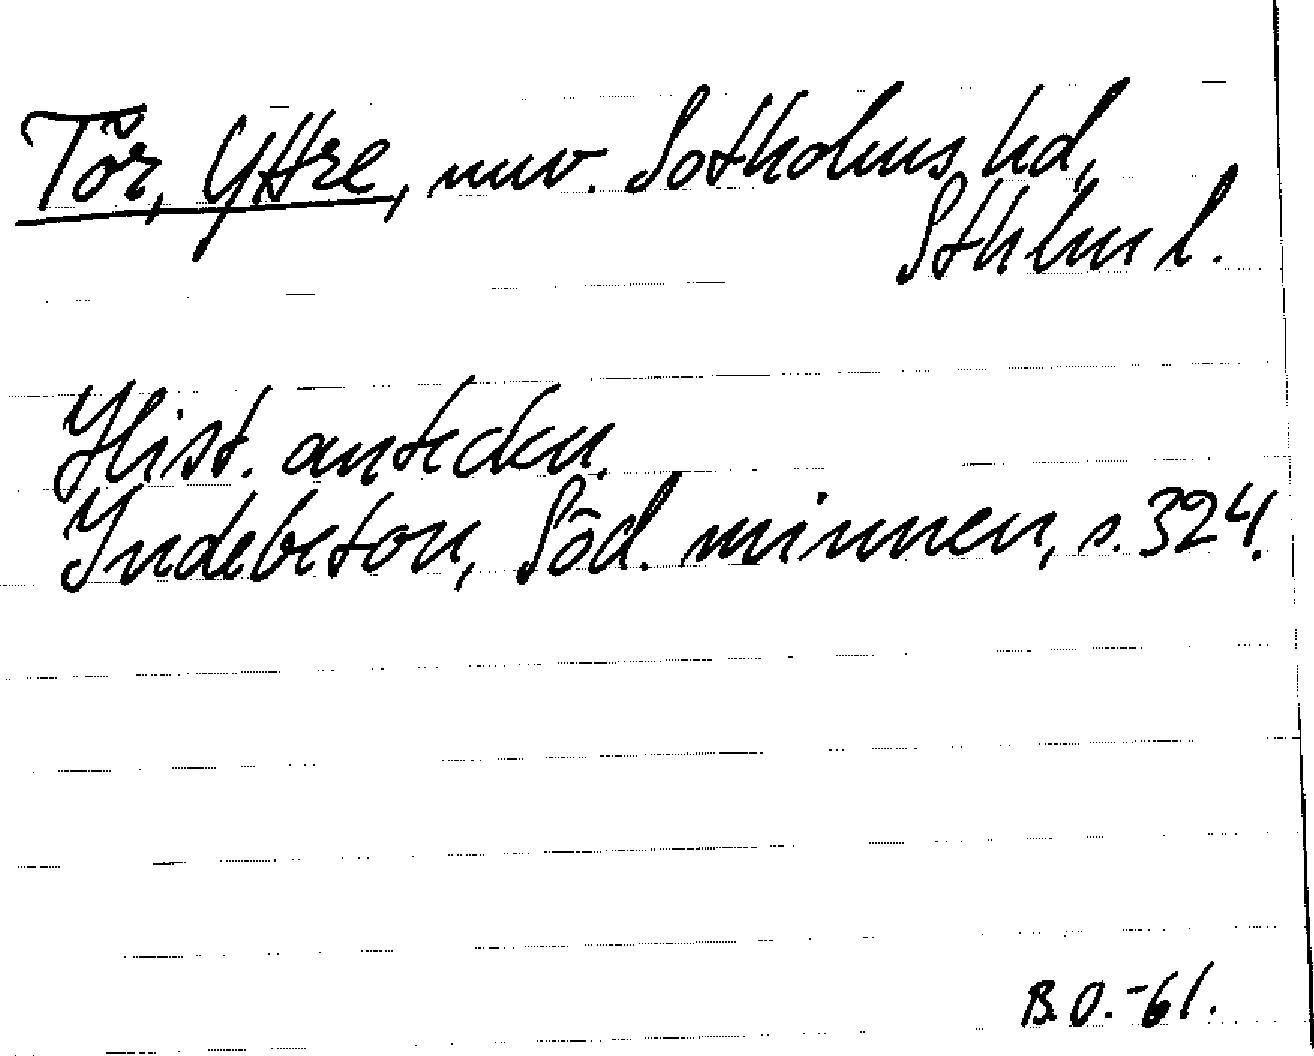 Tör, Yttre, nuv. Sotholms hd,
Sthlm l.
Hist. anteckn.
Indebetou, Söd. minnen, s. 324.
B.O.-61.